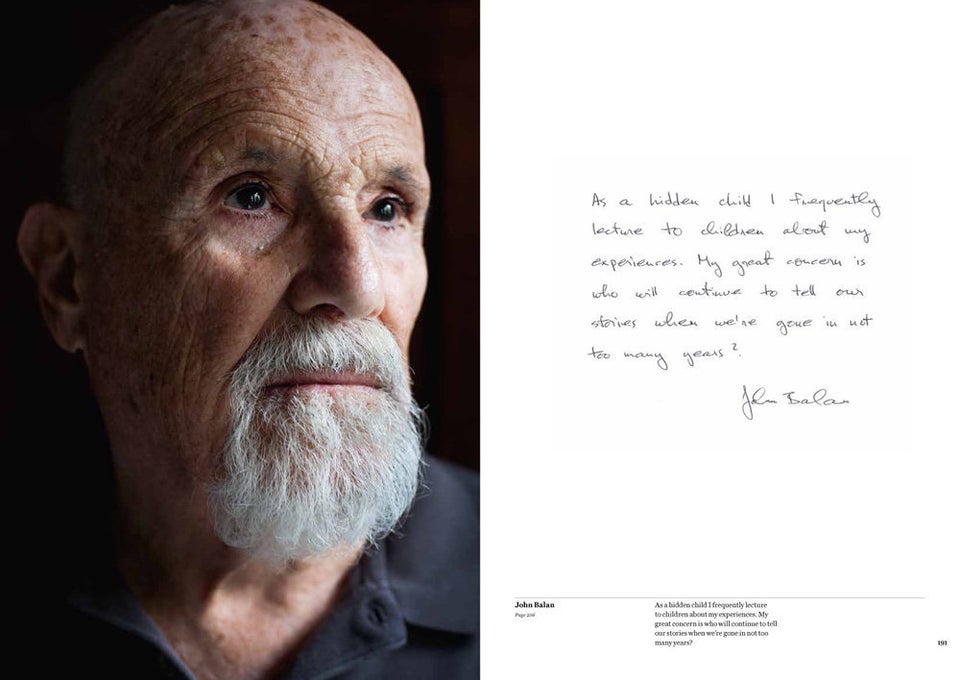 As a hidden child I frequently
lecture to children about my
experiences. My great concern is
who will continue to tell our
stories when we're gone in not
too many years?
John Balan
John Balan
Page 206
As a hidden child I frequently lecture
to children about my experiences. My
great concern is who will continue to tell
our stories when we're gone in not too
many years?
191